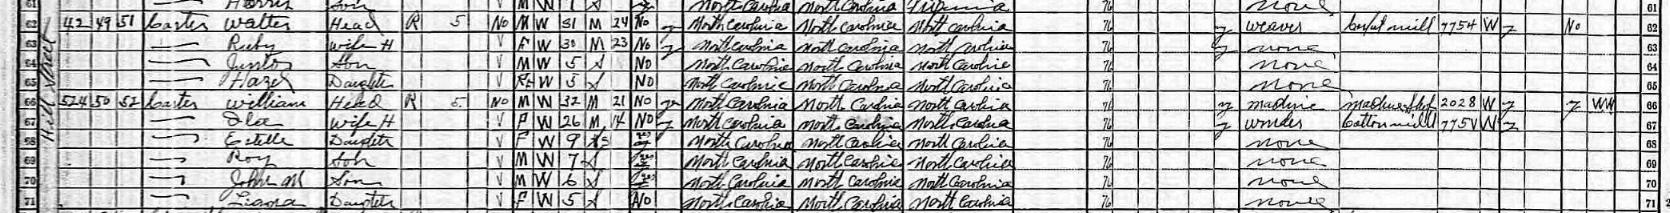 61 Harris Son M W 1 S North Carolina North Carolina Virginia 76 none 61
62 42 49 51 Carter Walter Head R 5 No V M W 31 M 24 No North Carolina North Carolina North Carolina 76 y weaver mill 7754 W y No 62
63 Ruby Wife H V F W 30 M 23 No y North Carolina North Carolina North Carolina 76 y none 63
64 Junior Son V M W 5 S No North Carolina North Carolina North Carolina 76 none 64
65 Hazel Daughter W 5 S No North Carolina North Carolina North Carolina 76 none 65
66 524 50 52 Carter William Head R 5 No V M W 32 M 21 No North Carolina North Carolina North Carolina 76 y 2028 W y y WW 66
67 Wife H V F W 26 M 14 No y North Carolina North Carolina North Carolina 76 y Cotton mill 775 W y 67
68 Estelle Daughter V F W 9 S North Carolina North Carolina North Carolina 76 none 68
69 Roy Son V M W 7 S North Carolina North Carolina North Carolina 76 none 69
70 John M Son V M W 6 S North Carolina North Carolina North Carolina 76 none 70
71 Daughter V F W 5 S No North Carolina North Carolina North Carolina 76 none 71
Street